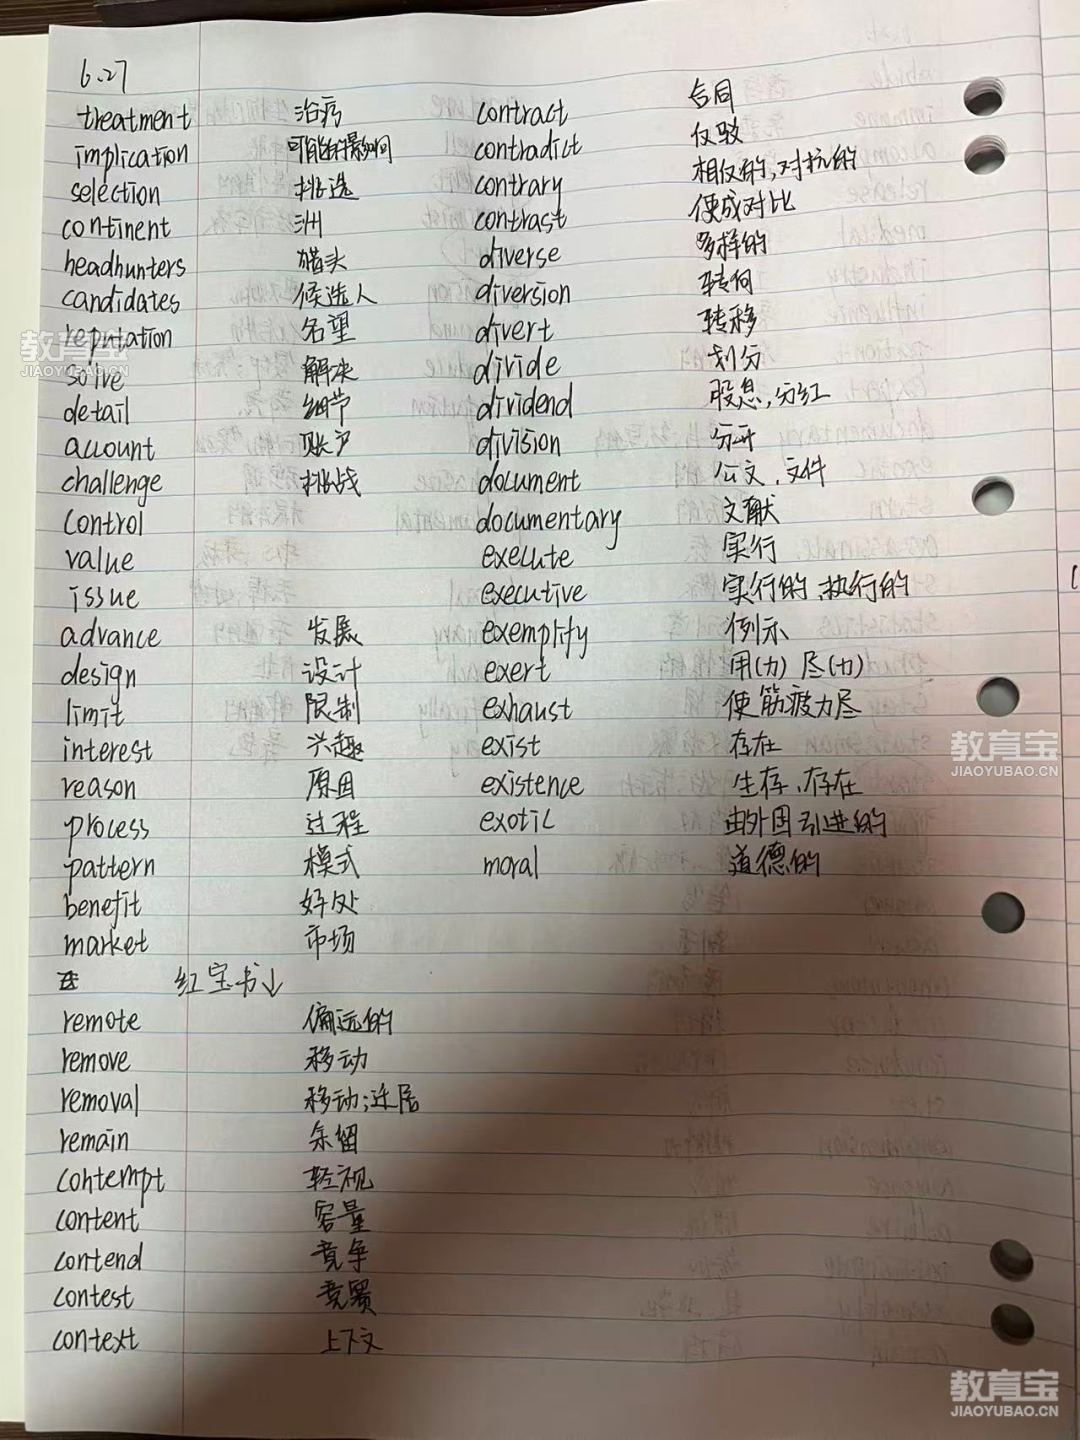 6.27
treatment 治疗
implication 可能的影响
selection 挑选
continent 洲
headhunters 猎头
candidates 候选人
reputation 名望
solve 解决
detail 细节
account 账户
challenge 挑战
control
value
issue
advance 发展
design 设计
limit 限制
interest 兴趣
reason 原因
process 过程
pattern 模式
benefit 好处
market 市场
红宝书↓
remote 偏远的
remove 移动
removal 移动;迁居
remain 余留
contempt 轻视
content 容量
contend 竞争
contest 竞赛
context 上下文
contract 合同
contradict 反驳
contrary 相反的,对抗的
contrast 使成对比
diverse 多样的
diversion 转向
divert 转移
divide 划分
dividend 股息,分红
division 分开
document 公文、文件
documentary 文献
execute 实行
executive 实行的、执行的
exemplify 例示
exert 用(力) 尽(力)
exhaust 使筋疲力尽
exist 存在
existence 生存、存在
exotic 由外国引进的
moral 道德的
教育宝
JIAOYUBAO.CN
教育宝
JIAOYUBAO.CN
教育宝
JIAOYUBAO.CN